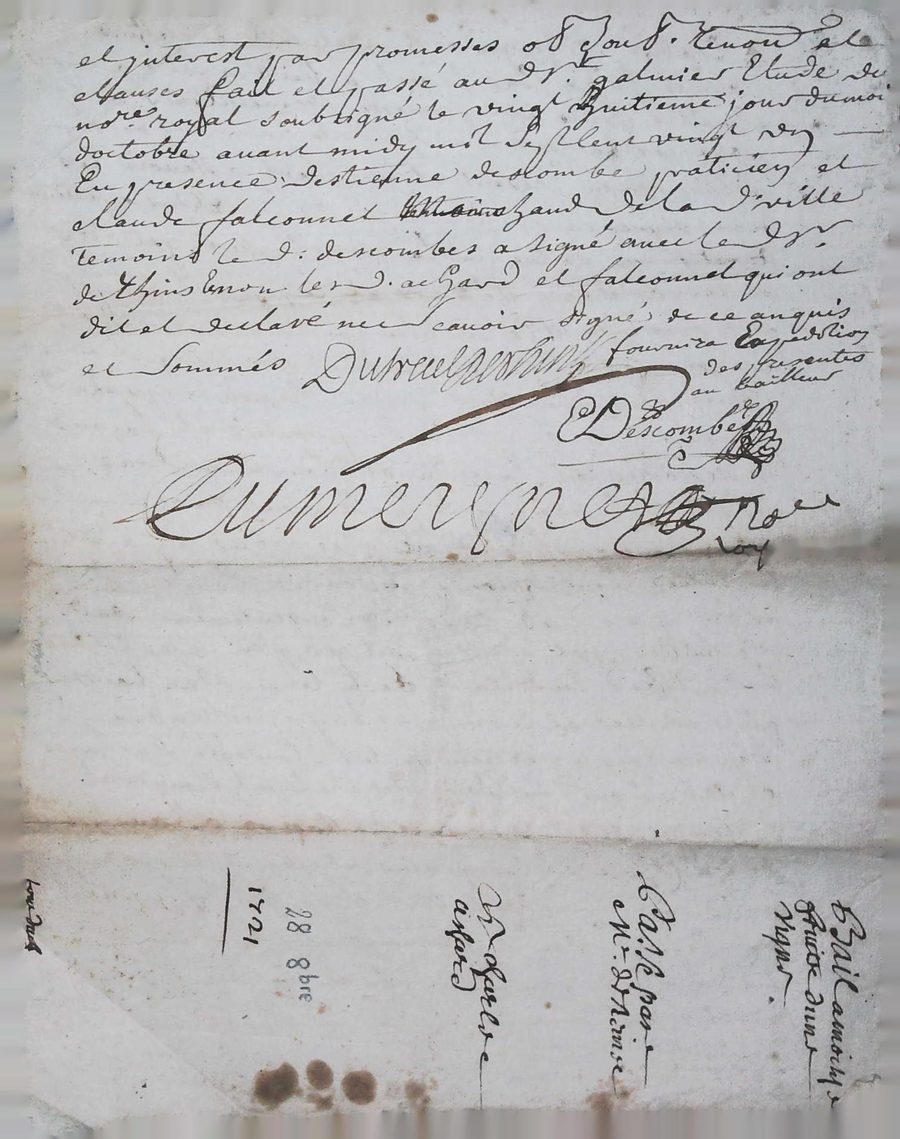 et interest par promesses obg soub. renon et
clauses fait et passé au dt. galmier Etude du
nore royal soubsigné le vingt huitieme jour du moi
doctobre avant midy mil sept cent vingt un
En presence destienne descombe praticien et
claude falconnet chand de la de ville
temoins le d: descombes a signé avec le dr.
de thins non les d. achard et falconnet qui ont
dit et declaré ne scavoir signé de ce anquis
et sommés
Dutreul dethins
fournira Expedition
des presentes
au bailleur
EDescombe
Dumeignet
Nore
roy
Bail a moitye
fruict d'une
vigne.
Passé par
Mr. de thains
achard
28 8bre
1721